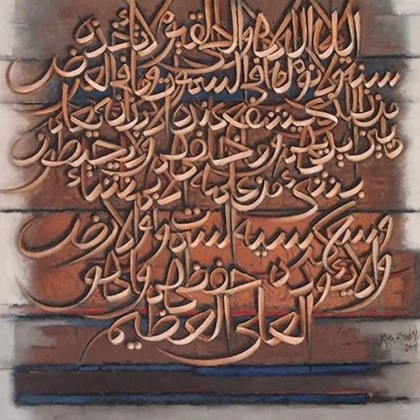 الله لا إله إلا هو الحي القيوم لا تأخذه
سنة ولا نوم له ما في السموت وما في الأرض
من ذا الذي يشفع عنده إلا بإذنه يعلم
ما بين أيديهم وما خلفهم ولا يحيطون
بشيء من علمه إلا بما شاء
وسع كرسيه السموت والأرض
ولا يئوده حفظهما وهو
العلي العظيم